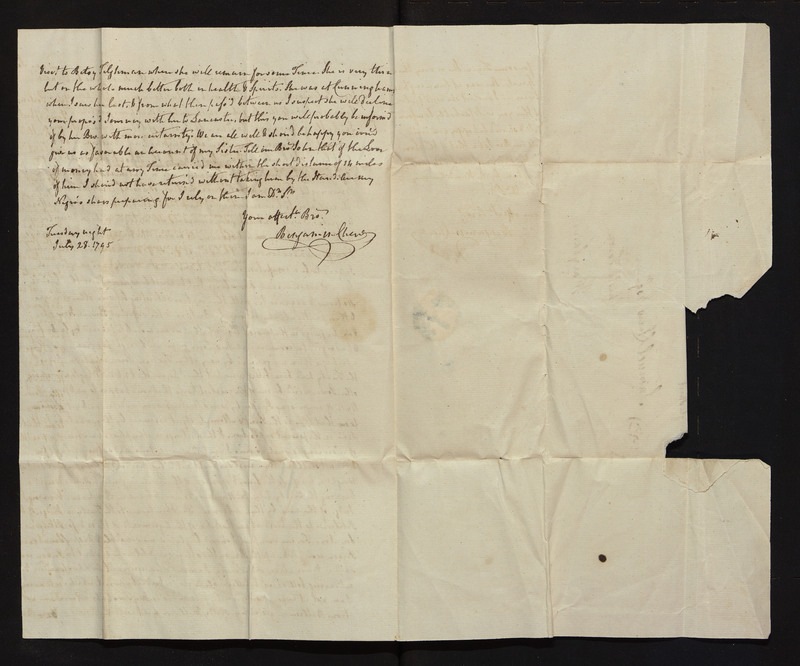 to Betsy Tilghman where she will remain for some Time. She is very thin
but on the whole much better both in health & Spirits. She was at Cunninghams
when I saw her last, & from what then pass'd between us I suspect she will decline
your propos'd Journey with her to Lancaster, but this you will probably be inform'd
of by her Bro. with more certainty. We are all well & should be happy you could
give us as favorable an account of my Sister. Tell him Bro. John that if the Love
of money had at any Time carried me within the short distance of 14 miles
of him I should not have return'd without taking him by the Hand.
Negro shoes preparing for I rely on their I am Dr. Sr.
Your affect. Bro.
Benjamin Chew
Tuesday night
July 28. 1795